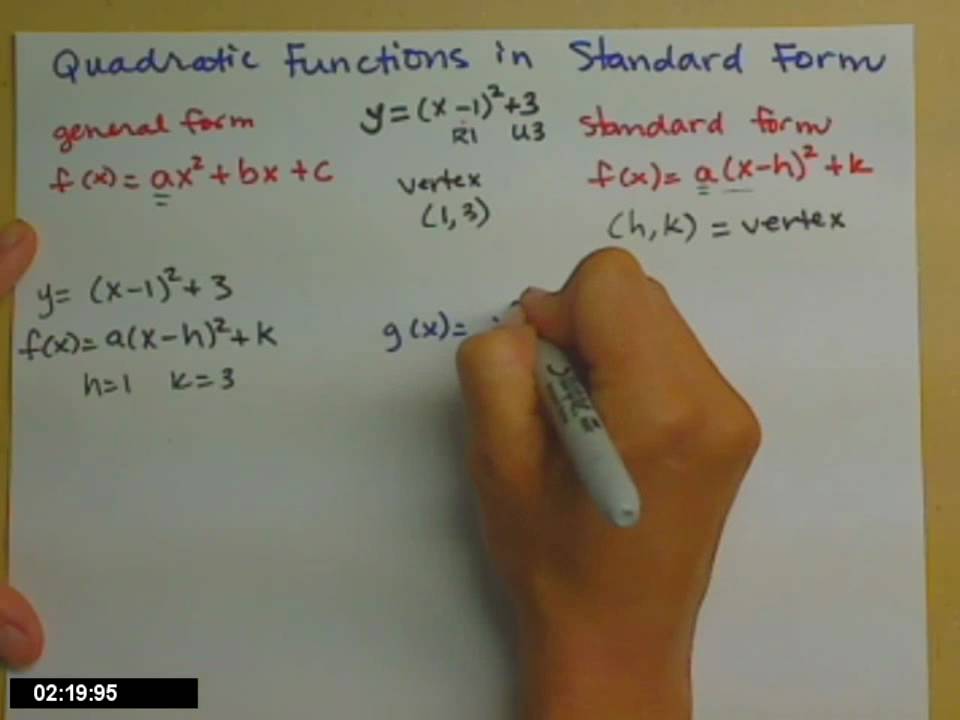 Quadratic Functions in Standard Form
general form
f(x) = ax² + bx + c
y = (x - 1)² + 3
R1 U3
vertex
(1, 3)
standard form
f(x) = a(x - h)² + k
(h, k) = vertex
y = (x - 1)² + 3
f(x) = a(x - h)² + k
h = 1 k = 3
g(x) =
02:19:95